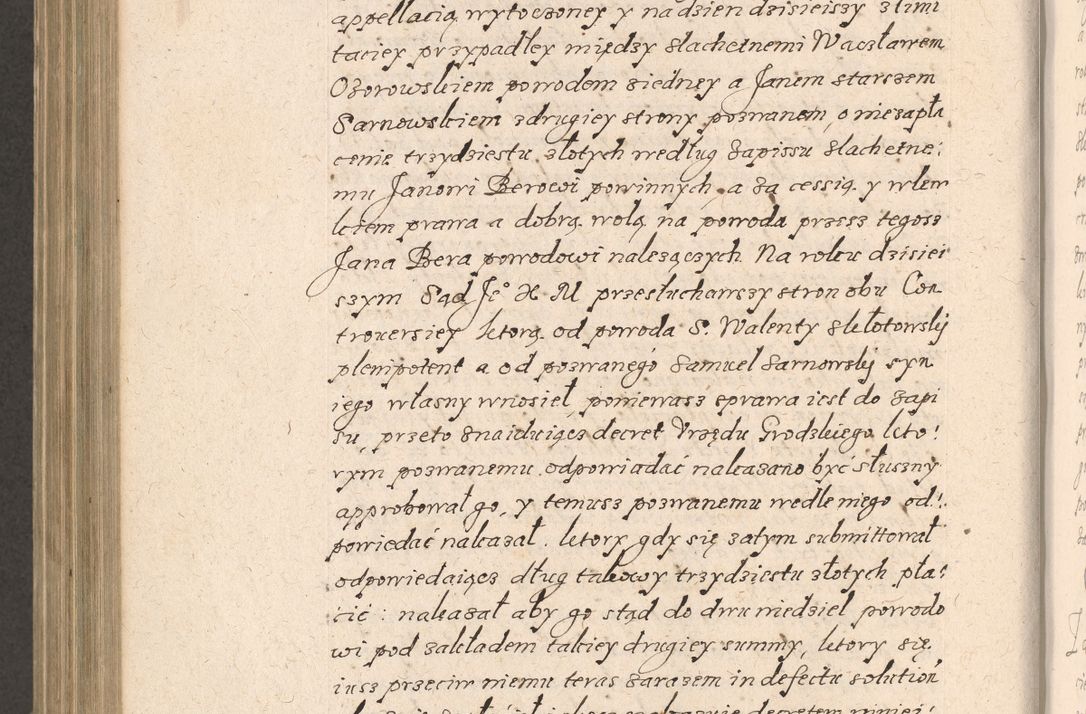 appellacią wytoczoney y na dzien dzisieiszy z limi
taciey przypadłey między slachetnemi Wacławem
Ozorowskiem powodem ziedney a Janem starszem
Sarnowskiem zdrugiey strony pozwanem, o niezapła
cenie trzydziestu złotych według zapissu slachetne:
mu Janowi Berowi powinnych, a za cessią y wlew
kiem prawa a dobrą wolą na powoda przesz tegosz
Jana Bera powodowi nalezączych. Na roku dzisiei
szym Sąd Je° X M przesłuchawszy stron obu Con
trouersiey ktorą od powoda S. Walenty Skłotowskij
plenipotent a od pozwanego Samuel Sarnowskij syn
iego własny wnosieł, poniewasz sprawa iest do zapi
su, przeto znaiduiącz decret Vrzędu Grodzkiego kto:
rym pozwanemu odpowiadać nakazano być słuszny
approbował go, y temusz pozwanemu wedle niego od:
powiedać nakazał. ktory gdy się zatym submittował
odpowiedaiącz dług takowy trzydziestu złotych pła:
cić: nakazał aby go stąd do dwu niedziel powodo
wi pod zakładem takiey drugiey summy, ktory się
iusz przeciw niemu teras zarazem in defectu solutioń